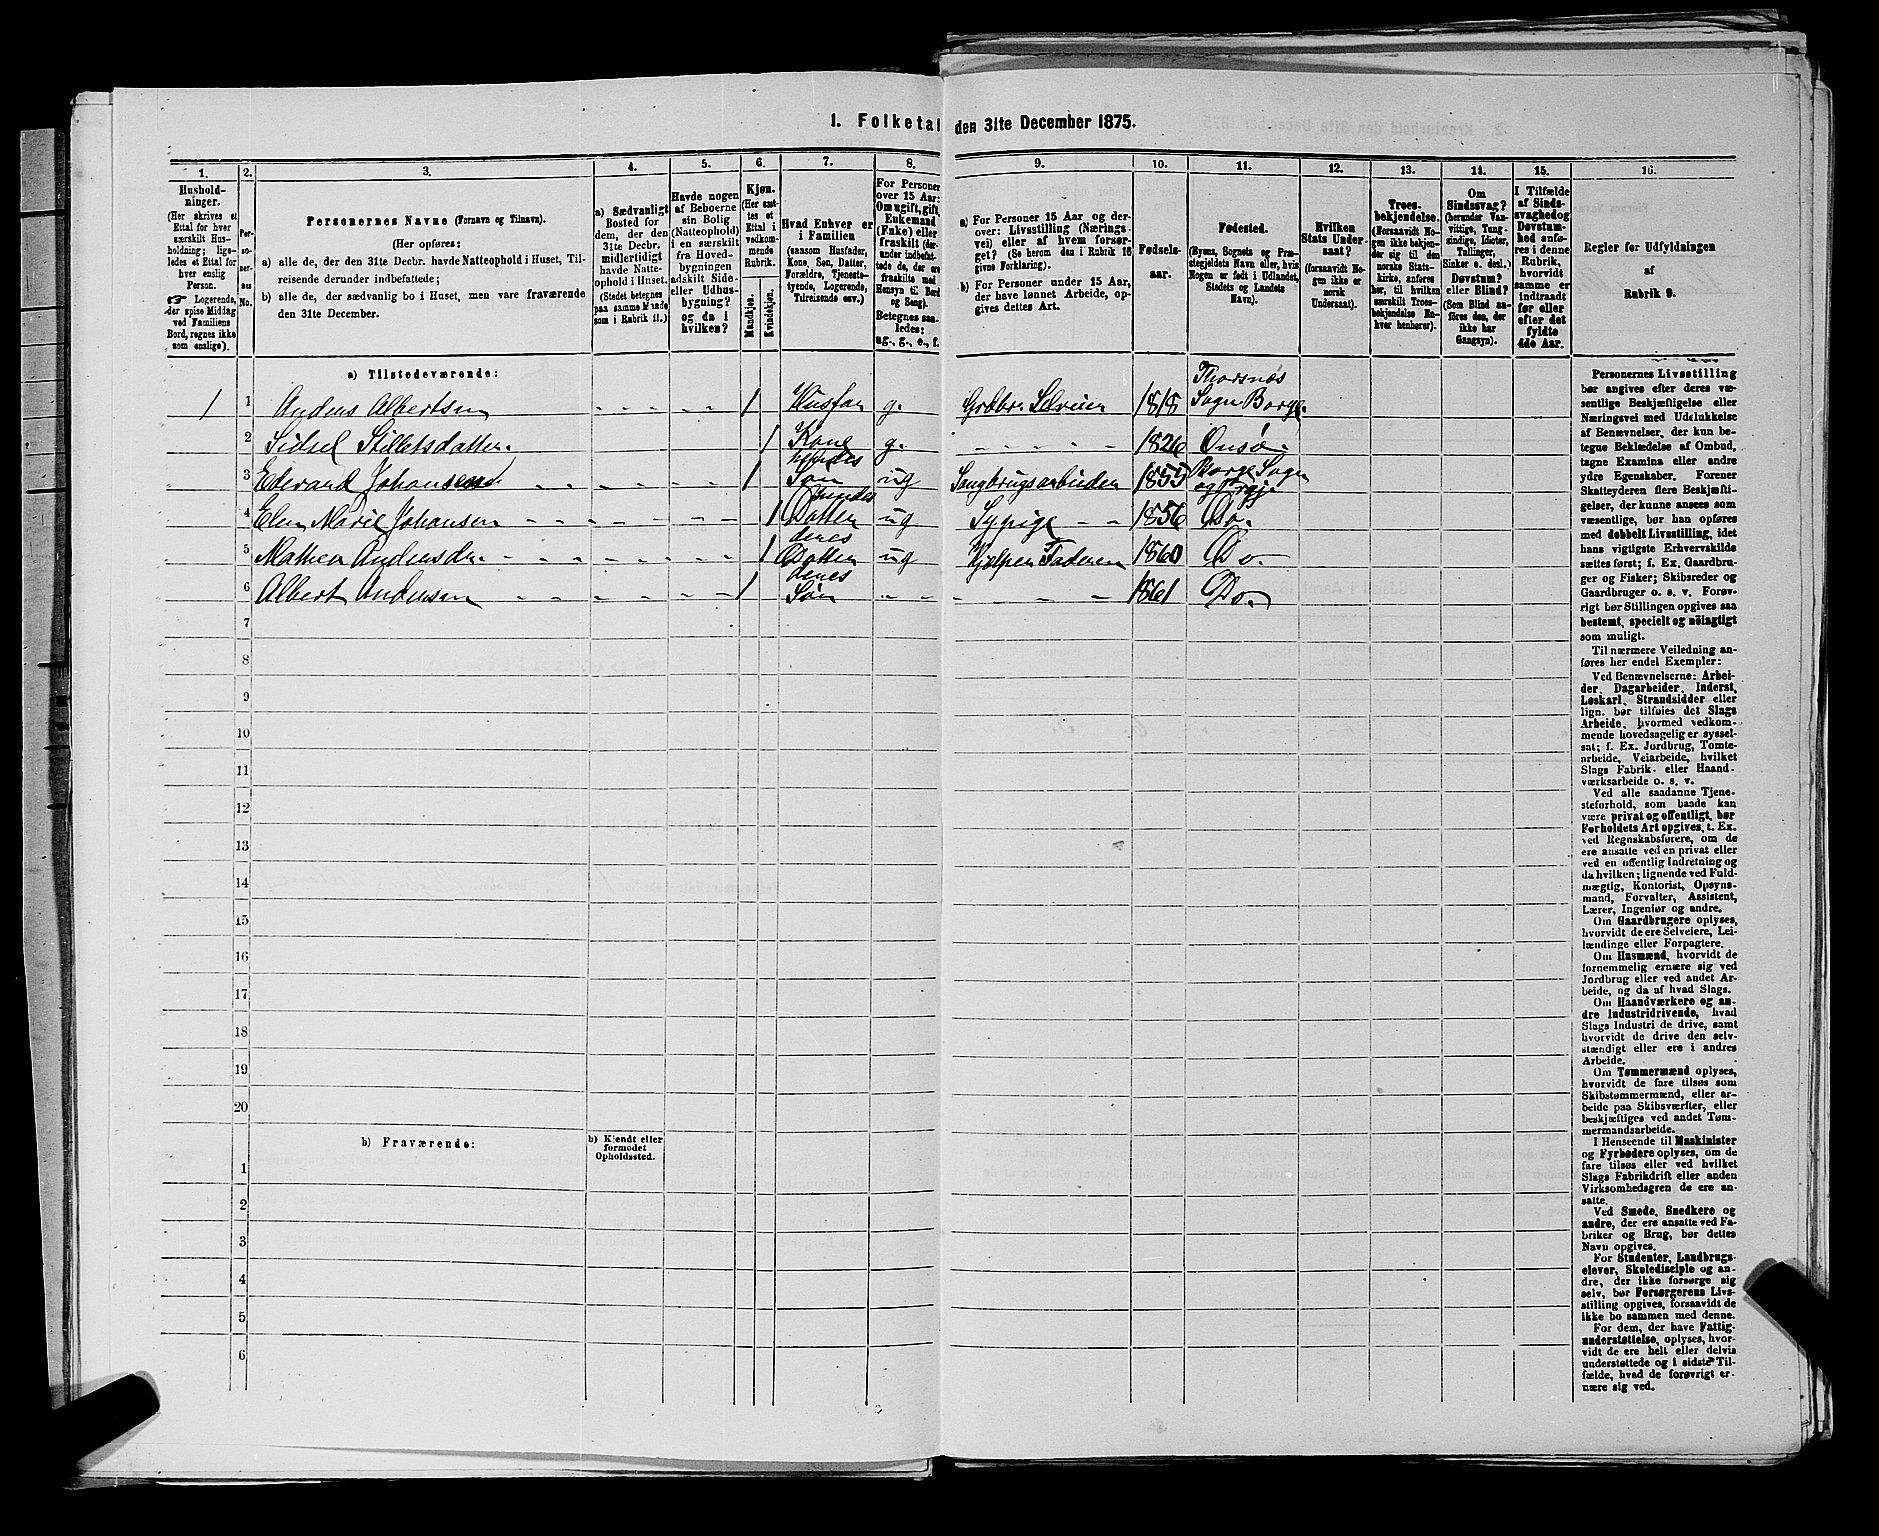 1. Folketal den 31te December 1875.
1. 2. 3. 4. 5. 6. 7. 8. 9. 10. 11. 12. 13. 14. 15. 16.
Hushold-
ninger.
(Her skrives et
Ettal for hver
særskilt Hus-
holdning; lige-
ledes et Ettal for
hver enslig
Person.
☞ Logerende,
der spise Middag
ved Familiens
Bord, regnes ikke
som enslige).
Per-
so-
ner-
nes
No.
Personernes Navne (Fornavn og Tilnavn).
(Her opføres:
a) alle de, der den 31te Decbr. havde Natteophold i Huset, Til-
reisende derunder indbefattede;
b) alle de, der sædvanlig bo i Huset, men vare fraværende
den 31te December.
a) Sædvanligt
Bosted for
dem, der den
31te Decbr.
midlertidigt
havde Natte-
ophold i Huset.
(Stedet betegnes
paa samme Maade
som i Rubrik 11.)
Havde nogen
af Beboerne
sin Bolig
(Natteophold)
i en særskilt
fra Hoved-
bygningen
adskilt Side-
eller Udhus-
bygning?
og da i
hvilken?
Kjøn.
(Her sæt-
tes et
Ettal i
vedkom-
mende
Rubrik.
Mandkjøn.
Kvindekjøn.
Hvad Enhver er
i Familien
(saasom Husfader,
Kone, Søn, Datter,
Forældre, Tjeneste-
tyende, Logerende,
Tilreisende osv.)
For Personer
over 15 Aar:
Om ugift, gift,
Enkemand
(Enke) eller
fraskilt (der-
under indbefat-
tede de, der ere
fraskilte med
Hensyn til Bord
og Seng).
Betegnes saa-
ledes:
ug., g., e., f.
a) For Personer 15 Aar og der-
over: Livsstilling (Nærings-
vei) eller af hvem forsør-
get? (Se herom den i Rubrik 16
givne Forklaring).
b) For Personer under 15 Aar,
der have lønnet Arbeide, op-
gives dettes Art.
Fødsels-
aar.
Fødested.
(Byens, Sognets og Præ-
stegjeldets Navn eller, hvis
Nogen er født i Udlandet,
Stedets og Landets
Navn).
Hvilken
Stats Under-
saat?
(forsaavidt No-
gen ikke er
norsk
Undersaat).
Troes-
bekjendelse.
(Forsaavidt No-
gen ikke bekjen-
der sig til den
norske Stats-
kirke, anføres
her, til hvilken
særskilt Troes-
bekjendelse En-
hver henhører).
Om
Sindssvag?
(herunder Van-
vittige, Tung-
sindige, Idioter,
Tullinger,
Sinker o. desl.)
Døvstum?
eller Blind?
(Som Blind an-
føres den, der
ikke har
Gangsyn).
I Tilfælde
af Sinds-
svaghed og
Døvstum-
hed anfø-
res i denne
Rubrik,
hvorvidt
samme er
indtraadt
før eller
efter det
fyldte
4de Aar.
Regler for Udfyldningen
af
Rubrik 9.
a) Tilstedeværende:
1 1 Anders Albertsen 1 Husfar g. Grdbr. Selveier 1818 Thorsnæs Sogn Borge
2 Sidsel 1 Kone g. 1826 Onsø
3 Edevard Johansen 1 hendes Søn ug Saugbrugsarbeider 1855 Borge Sogn og Prgj
4 Elen Marie Johansen 1 hendes Datter ug Sypige 1856 Do.
5 Mathea Andersdr. 1 deres Datter ug Hjelper Faderen 1860 Do.
6 Albert Andersen 1 deres Søn 1861 Do.
7
8
9
10
11
12
13
14
15
16
17
18
19
20
b) Fraværende:
b) Kjendt eller
formodet
Opholdssted.
1
2
3
4
5
6
Personernes Livsstilling
bør angives efter deres væ-
sentlige Beskjæftigelse eller
Næringsvei med Udelukkelse
af Benævnelser, der kun be-
tegne Beklædelse af Ombud,
tagne Examina eller andre
ydre Egenskaber. Forener
Skatteyderen flere Beskjæfti-
gelser, der kunne ansees som
væsentlige, bør han opføres
med dobbelt Livsstilling, idet
hans vigtigste Erhvervskilde
sættes først; f. Ex. Gaardbru-
ger og Fisker; Skibsreder og
Gaardbruger o. s. v. Forøv-
rigt bør Stillingen opgives saa
bestemt, specielt og nøiagtigt
som muligt.
Til nærmere Veiledning an-
føres her endel Exempler:
Ved Benævnelserne: Arbei-
der, Dagarbeider, Inderst,
Løskarl, Strandsidder eller
lign. bør tilføies det Slags
Arbeide, hvormed vedkom-
mende hovedsagelig er syssel-
sat; f. Ex. Jordbrug, Tomte-
arbeide, Veiarbeide, hvilket
Slags Fabrik- eller Haand-
værksarbeide o. s. v.
Ved alle saadanne Tjene-
steforhold, som baade kan
være privat og offentligt, bør
Forholdets Art opgives, t. Ex.
ved Regnskabsførere, om de
ere ansatte ved en privat eller
ved en offentlig Indretning og
da hvilken; lignende ved Fuld-
mægtig, Kontorist, Opsyns-
mand, Forvalter, Assistent,
Lærer, Ingeniør og andre.
Om Gaardbrugere oplyses,
hvorvidt de ere Selveiere, Lei-
lændinge eller Forpagtere.
Om Husmænd, hvorvidt de
fornemmelig ernære sig ved
Jordbrug eller ved andet Ar-
beide, og da af hvad Slags.
Om Haandværkere og an-
dre Industridrivende, hvad
Slags Industri de drive, samt
hvorvidt de drive den selv-
stændigt eller ere i andres
Arbeide.
Om Tømmermænd oplyses,
hvorvidt de fare tilsøs som
Skibstømmermænd, eller ar-
beide paa Skibsværfter, eller
beskjæftiges ved andet Tøm-
mermandsarbeide.
I Henseende til Maskinister
og Fyrbødere oplyses, om de
fare tilsøs eller ved hvilket
Slags Fabrikdrift eller anden
Virksomhedsgren de ere an-
satte.
Ved Smede, Snedkere og
andre, der ere ansatte ved Fa-
briker og Brug, bør dettes
Navn opgives.
For Studenter, Landbrugs-
elever, Skoledisciple og an-
dre, der ikke forsørge sig
selv, bør Forsørgerens Livs-
stilling opgives, forsaavidt de
ikke bo sammen med denne.
For dem, der have Fattig-
understøttelse, oplyses, hvor-
vidt de ere helt eller delvis
understøttede og i sidste Til-
fælde, hvad de forøvrigt er-
nære sig ved.